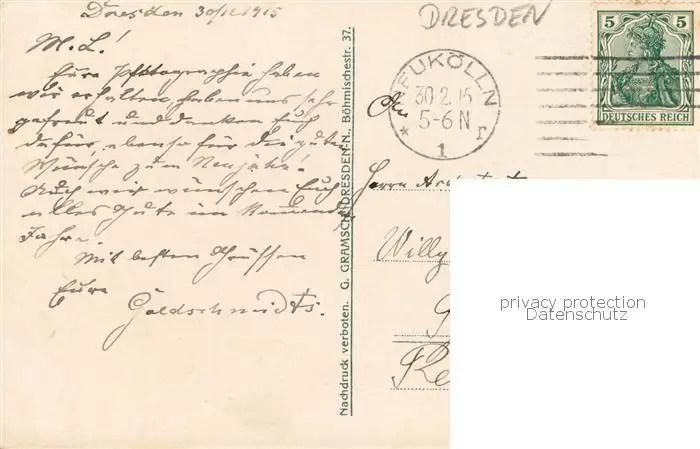 Dresden 30/12 1915
M. L.!
Eure Photographie haben
wir erhalten, haben uns sehr
gefreut und danken Euch
dafür, ebenso für die guten
Wünsche zum Neujahr!
Auch wir wünschen Euch
alles Gute im kommenden
Jahre.
Mit besten Grüssen
Eure
Goldschmidts.
Nachdruck verboten. G. GRAMSCH, DRESDEN-N., Böhmischestr. 37.
DRESDEN
5 5
DEUTSCHES REICH
EUKÖLLN
30. 2. 15
5-6 N
* 1 r
An
Herrn
Willy
privacy protection
Datenschutz